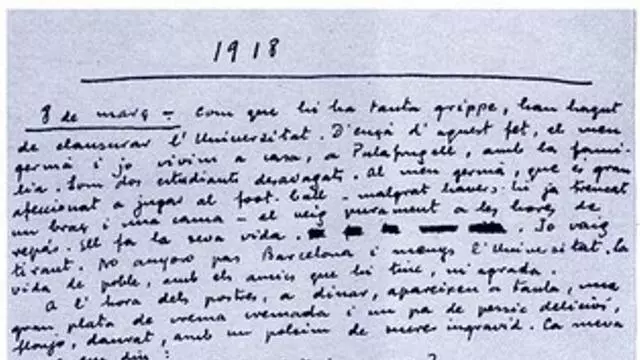 1918
8 de març - Com que hi ha tanta grippe, han hagut
de clausurar l'Universitat. D'ençà d'aquest fet, el meu
germà i jo vivim a casa, a Palafrugell, amb la famí-
lia. Som dos estudiants desvagats. Al meu germà, que és gran
afeccionat a jugar al foot-ball - malgrat haver-hi ja trencat
un braç i una cama - el veig purament a les hores de
repàs. Ell fa la seva vida. Jo vaig
tirant. No anyoro pas Barcelona i menys l'Universitat. La
vida de poble, amb els amics que hi tinc, m'agrada.
A l'hora dels postres, a dinar, apareixen a taula, una
gran plata de crema cremada i un pa de pessic deliciós,
flonjo, daurat, amb un polsim de sucre ingràvid. La meva
em diu: